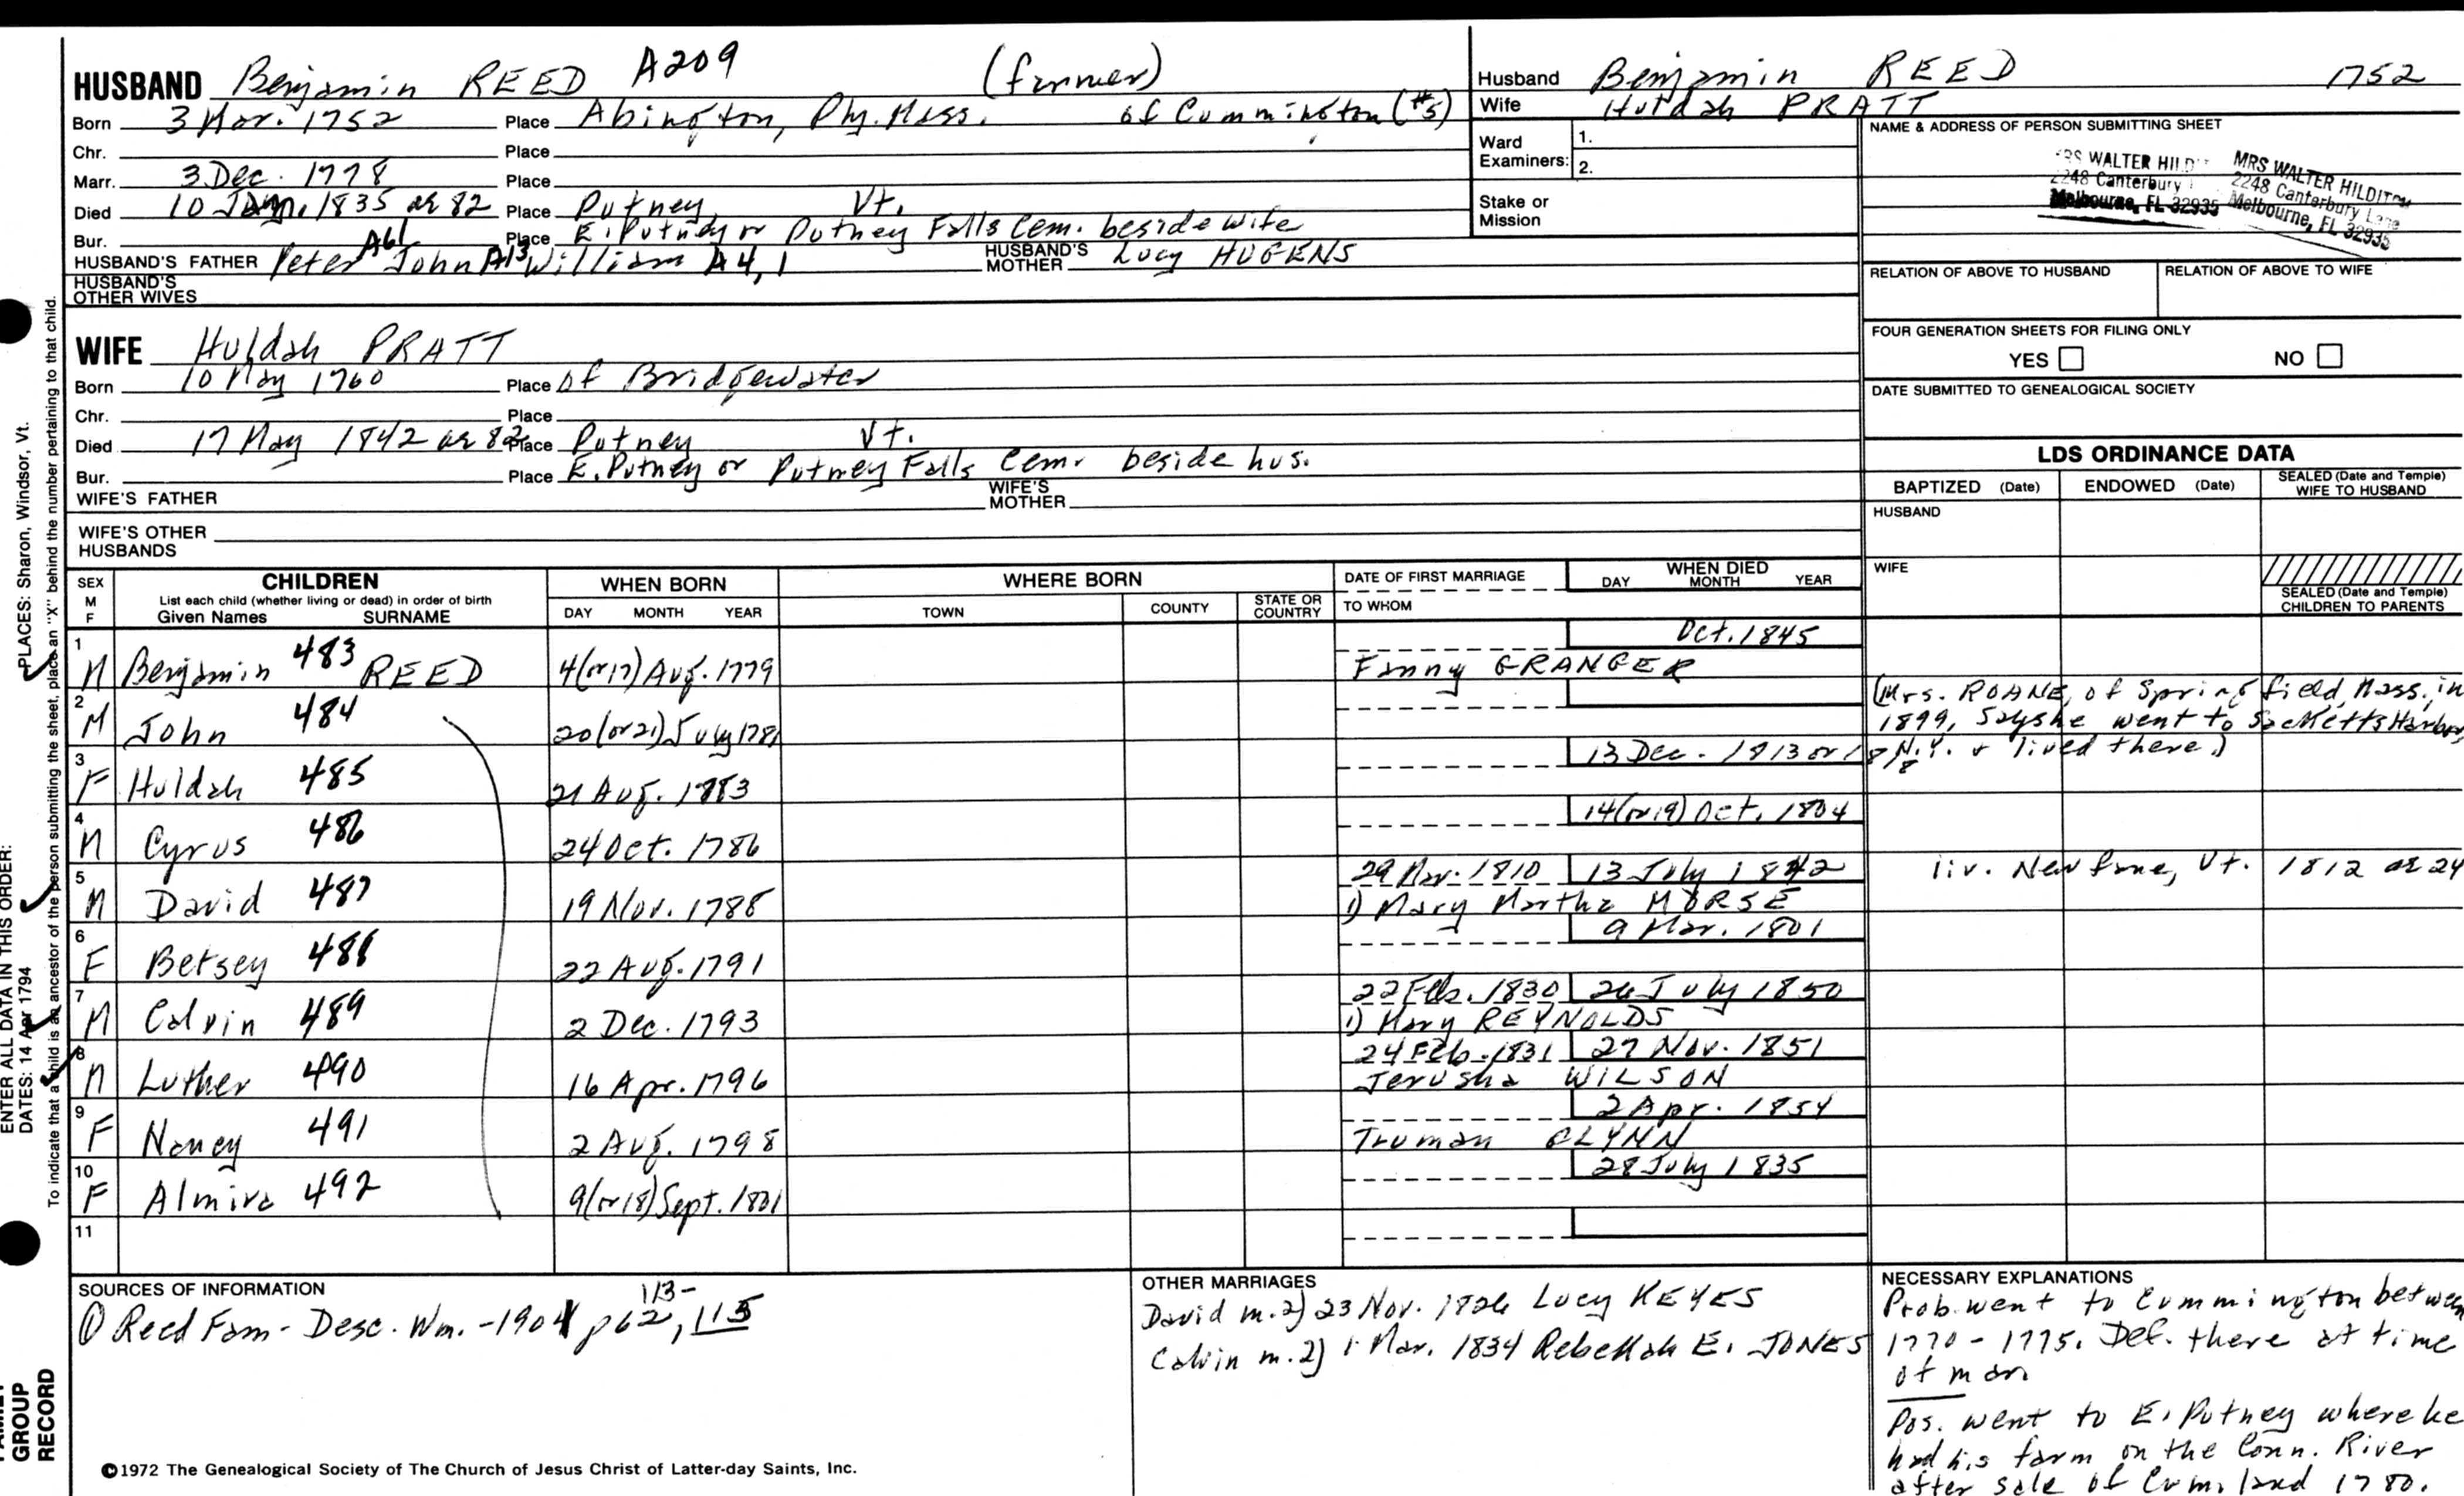 HUSBAND Benjamin REED A209 (farmer)
Born 3 Mar. 1752 Place Abington, Ply. Mass. of Cummington (#5)
Chr. Place
Marr. 3 Dec. 1778 Place
Died 10 Jan. 1835 ae 82 Place Putney, Vt.
Bur. Place E. Putney or Putney Falls Cem. beside wife
HUSBAND'S FATHER Peter A61 John A13 William A4, 1 HUSBAND'S MOTHER Lucy HUGENS
HUSBAND'S OTHER WIVES
WIFE Huldah PRATT
Born 10 May 1760 Place of Bridgewater
Chr. Place
Died 17 May 1842 ae 82 Place Putney Vt.
Bur. Place E. Putney or Putney Falls Cem. beside hus.
WIFE'S FATHER WIFE'S MOTHER
WIFE'S OTHER HUSBANDS
Husband Benjamin REED 1752
Wife Huldah PRATT
Ward Examiners: 1.
2.
Stake or Mission
NAME & ADDRESS OF PERSON SUBMITTING SHEET
MRS WALTER HILD
2248 Canterbury
Melbourne, FL 32935
MRS WALTER HILDITCH
2248 Canterbury Lane
Melbourne, FL 32935
RELATION OF ABOVE TO HUSBAND RELATION OF ABOVE TO WIFE
FOUR GENERATION SHEETS FOR FILING ONLY
YES NO
DATE SUBMITTED TO GENEALOGICAL SOCIETY
LDS ORDINANCE DATA
BAPTIZED (Date) ENDOWED (Date) SEALED (Date and Temple) WIFE TO HUSBAND
HUSBAND
WIFE
SEALED (Date and Temple) CHILDREN TO PARENTS
SEX M F CHILDREN List each child (whether living or dead) in order of birth Given Names SURNAME
WHEN BORN DAY MONTH YEAR
WHERE BORN TOWN COUNTY STATE OR COUNTRY
DATE OF FIRST MARRIAGE TO WHOM
WHEN DIED DAY MONTH YEAR
1 M Benjamin 483 REED 4(or 17) Aug. 1779 Fanny GRANGER Oct. 1845
2 M John 484 20(or 21) July 1781
(Mrs. ROANE, of Springfield, Mass., in
1899, says he went to Sacketts Harbor,
N.Y. & lived there.)
3 F Huldah 485 21 Aug. 1783 13 Dec. 1813 or 18
4 M Cyrus 486 24 Oct. 1786 14(or 19) Oct. 1804
5 M David 487 19 Nov. 1788 29 Mar. 1810 13 July 1842
1) Mary Martha MORSE liv. Newfane, Vt. 1812 ae 24
6 F Betsey 488 22 Aug. 1791 9 Mar. 1801
7 M Calvin 489 2 Dec. 1793 22 Feb. 1830 26 July 1850
1) Mary REYNOLDS
8 M Luther 490 16 Apr. 1796 24 Feb. 1831 27 Nov. 1851
Jerusha WILSON
9 F Nancy 491 2 Aug. 1798 2 Apr. 1854
Truman GLYNN
10 F Almira 492 9(or 18) Sept. 1801 28 July 1835
11
SOURCES OF INFORMATION
① Reed Fam - Desc. Wm. - 1901 p 62, 113-115
OTHER MARRIAGES
David m. 2) 23 Nov. 1826 Lucy KEYES
Calvin m. 2) 1 Mar. 1834 Rebekah E. JONES
NECESSARY EXPLANATIONS
Prob. went to Cummington between
1770 - 1775. Def. there at time
of mar.
Pos. went to E. Putney where he
had his farm on the Conn. River
after sale of Cum. land 1780.
©1972 The Genealogical Society of The Church of Jesus Christ of Latter-day Saints, Inc.
ENTER ALL DATA IN THIS ORDER:
DATES: 14 Apr 1794
PLACES: Sharon, Windsor, Vt.
To indicate that a child is an ancestor of the person submitting the sheet, place an "X" behind the number pertaining to that child.
FAMILY
GROUP
RECORD